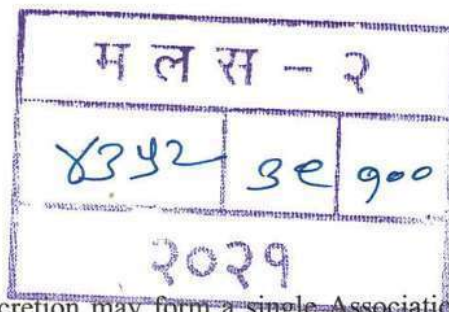 म ल स - २
४३५२ ३९ १००
२०२१
cretion may form a single Associatio